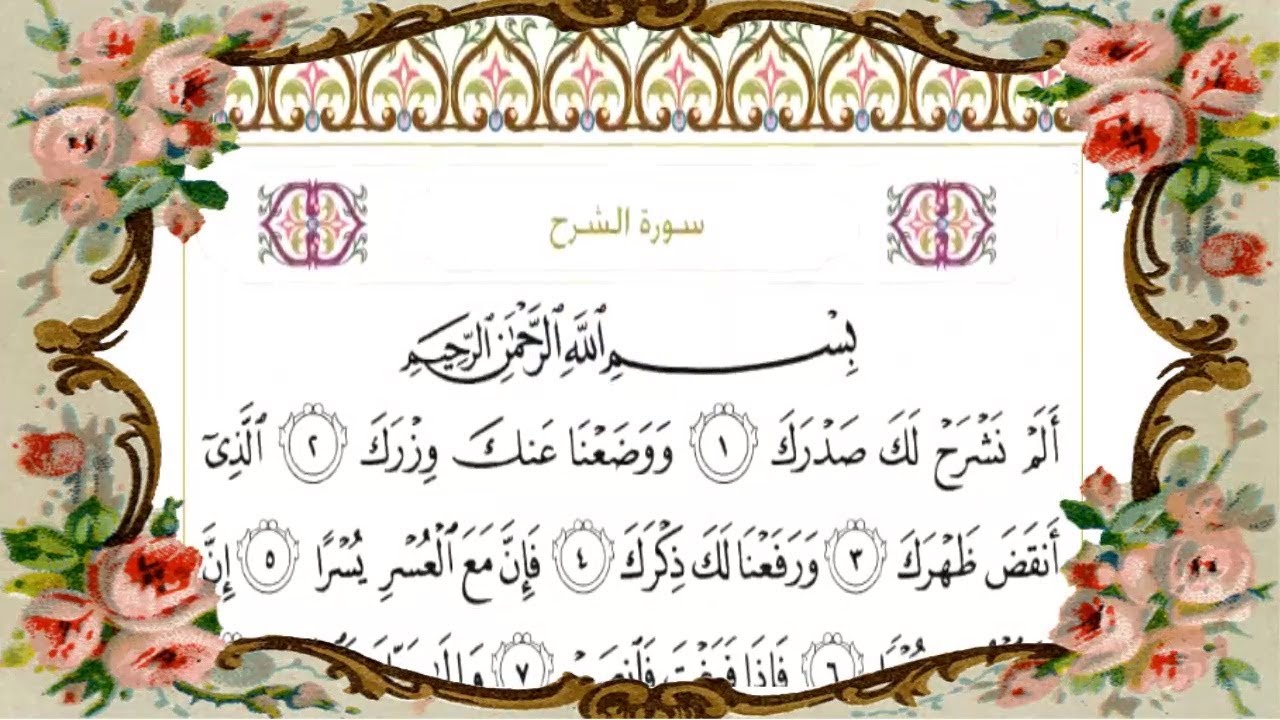 سورة الشرح
بِسْمِ ٱللَّهِ ٱلرَّحْمَٰنِ ٱلرَّحِيمِ
أَلَمْ نَشْرَحْ لَكَ صَدْرَكَ ١ وَوَضَعْنَا عَنكَ وِزْرَكَ ٢ ٱلَّذِىٓ
أَنقَضَ ظَهْرَكَ ٣ وَرَفَعْنَا لَكَ ذِكْرَكَ ٤ فَإِنَّ مَعَ ٱلْعُسْرِ يُسْرًا ٥ إِنَّ
٦ فَإِذَا فَرَغْتَ فَٱنصَبْ ٧